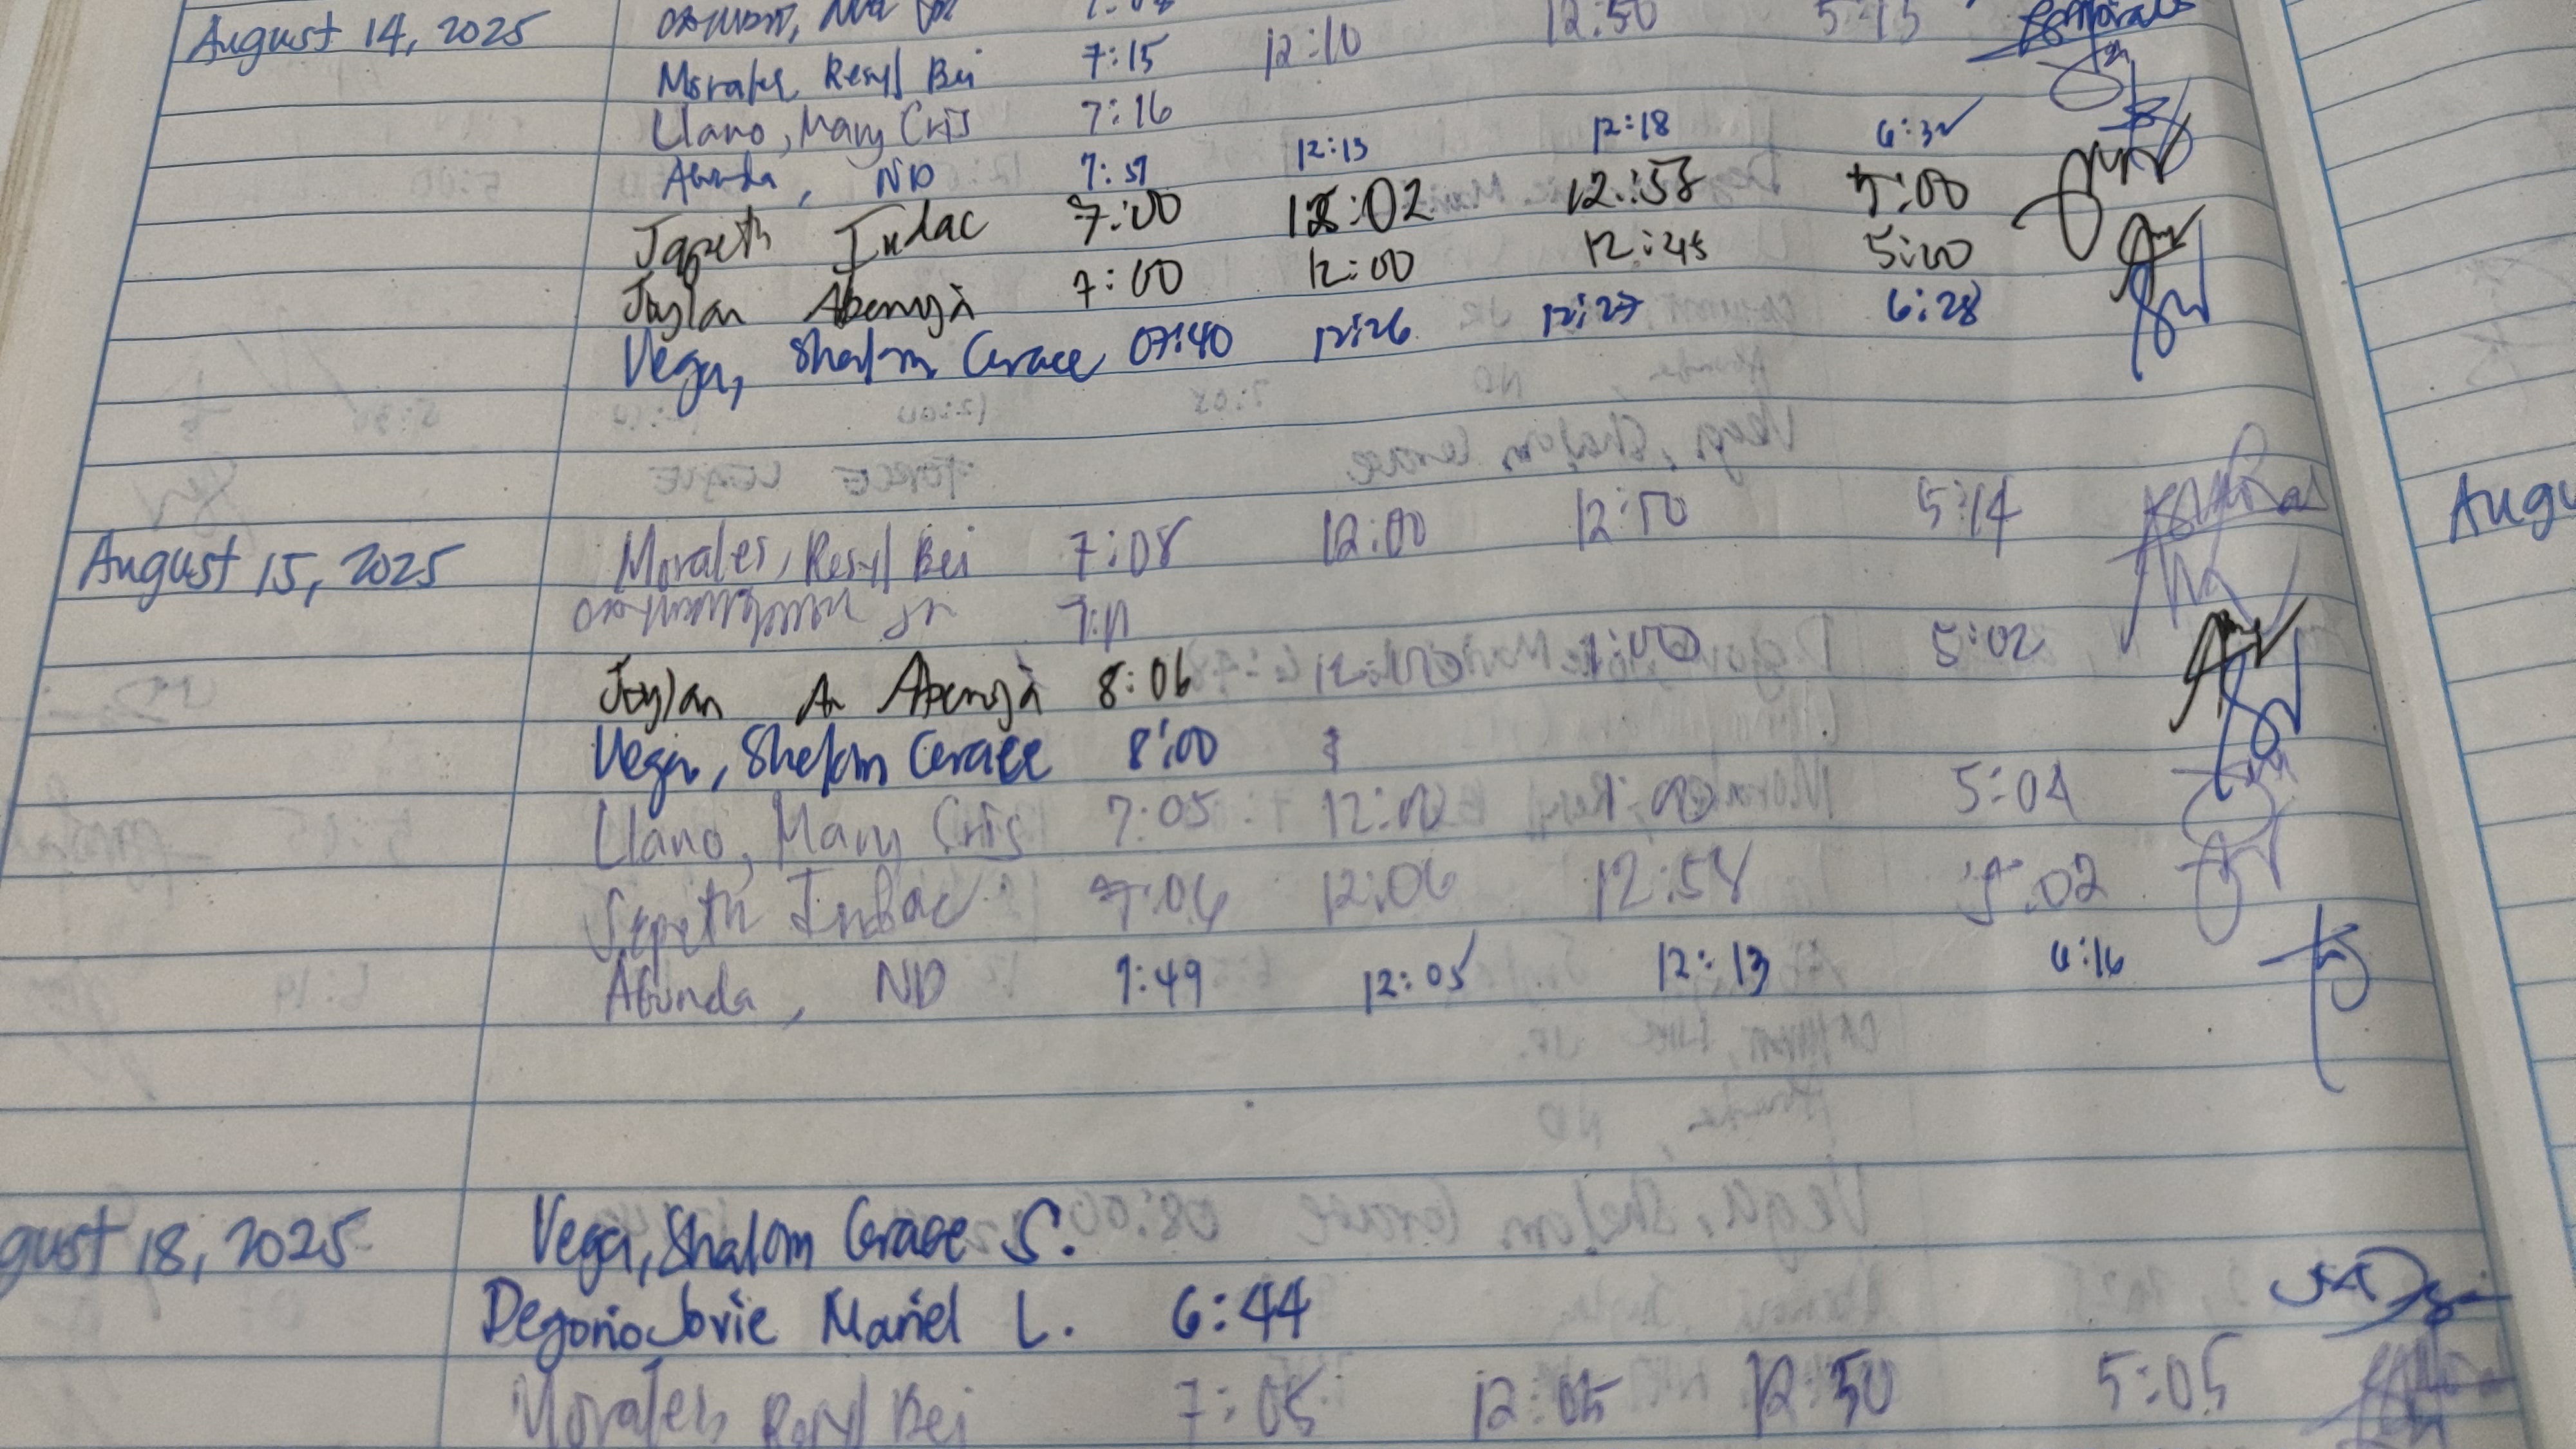 August 14, 2025
Morales, Resyl Bei 7:15 12:10 12:50 5:13
Llano, Mary Cris 7:16
Abunda, ND 7:57 12:13 12:18 6:32
Japeth Indac 7:00 12:02 12:58 5:00
Joylan Abenoja 7:00 12:00 12:45 5:00
Vega, Shalom Grace 07:40 12:26 12:27 6:28
August 15, 2025 Morales, Resyl Bei 7:08 12:00 12:50 5:14
Jr 7:11
Joylan An Abenoja 8:06 5:02
Vega, Shalom Grace 8:00
Llano, Mary Cris 7:05 12:00 1:00 5:04
Japeth Indac 7:06 12:06 12:58 5:02
Abunda, ND 7:49 12:05 12:13 6:16
gust 18, 2025 Vega, Shalom Grace S.
Degorio Jovie Mariel L. 6:44
Morales Resyl Bei 7:05 12:05 12:50 5:05
Augu